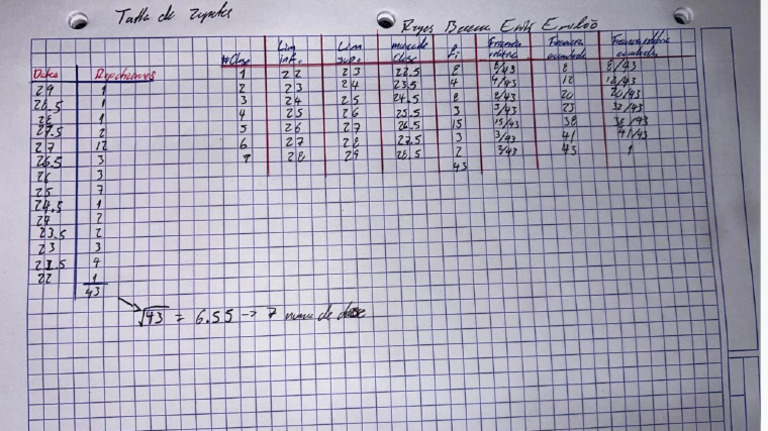 Talla de zapatos
Reyes Emilio
Datos Repeticiones
29 1
28.5 1
28 1
27.5 2
27 12
26.5 3
26 3
25 7
24.5 1
24 2
23.5 2
23 3
22.5 4
22 1
43
√43 = 6.55 → 7 de clase
# Clase Lim inf. Lim sup. marca de clase fi Frecuencia relativa Frecuencia acumulada Frecuencia relativa acumulada
1 22 23 22.5 8 8/43 8 8/43
2 23 24 23.5 4 4/43 12 12/43
3 24 25 24.5 8 8/43 20 20/43
4 25 26 25.5 3 3/43 23 32/43
5 26 27 26.5 15 15/43 38 38/43
6 27 28 27.5 3 3/43 41 41/43
7 28 29 28.5 2 2/43 43 1
43